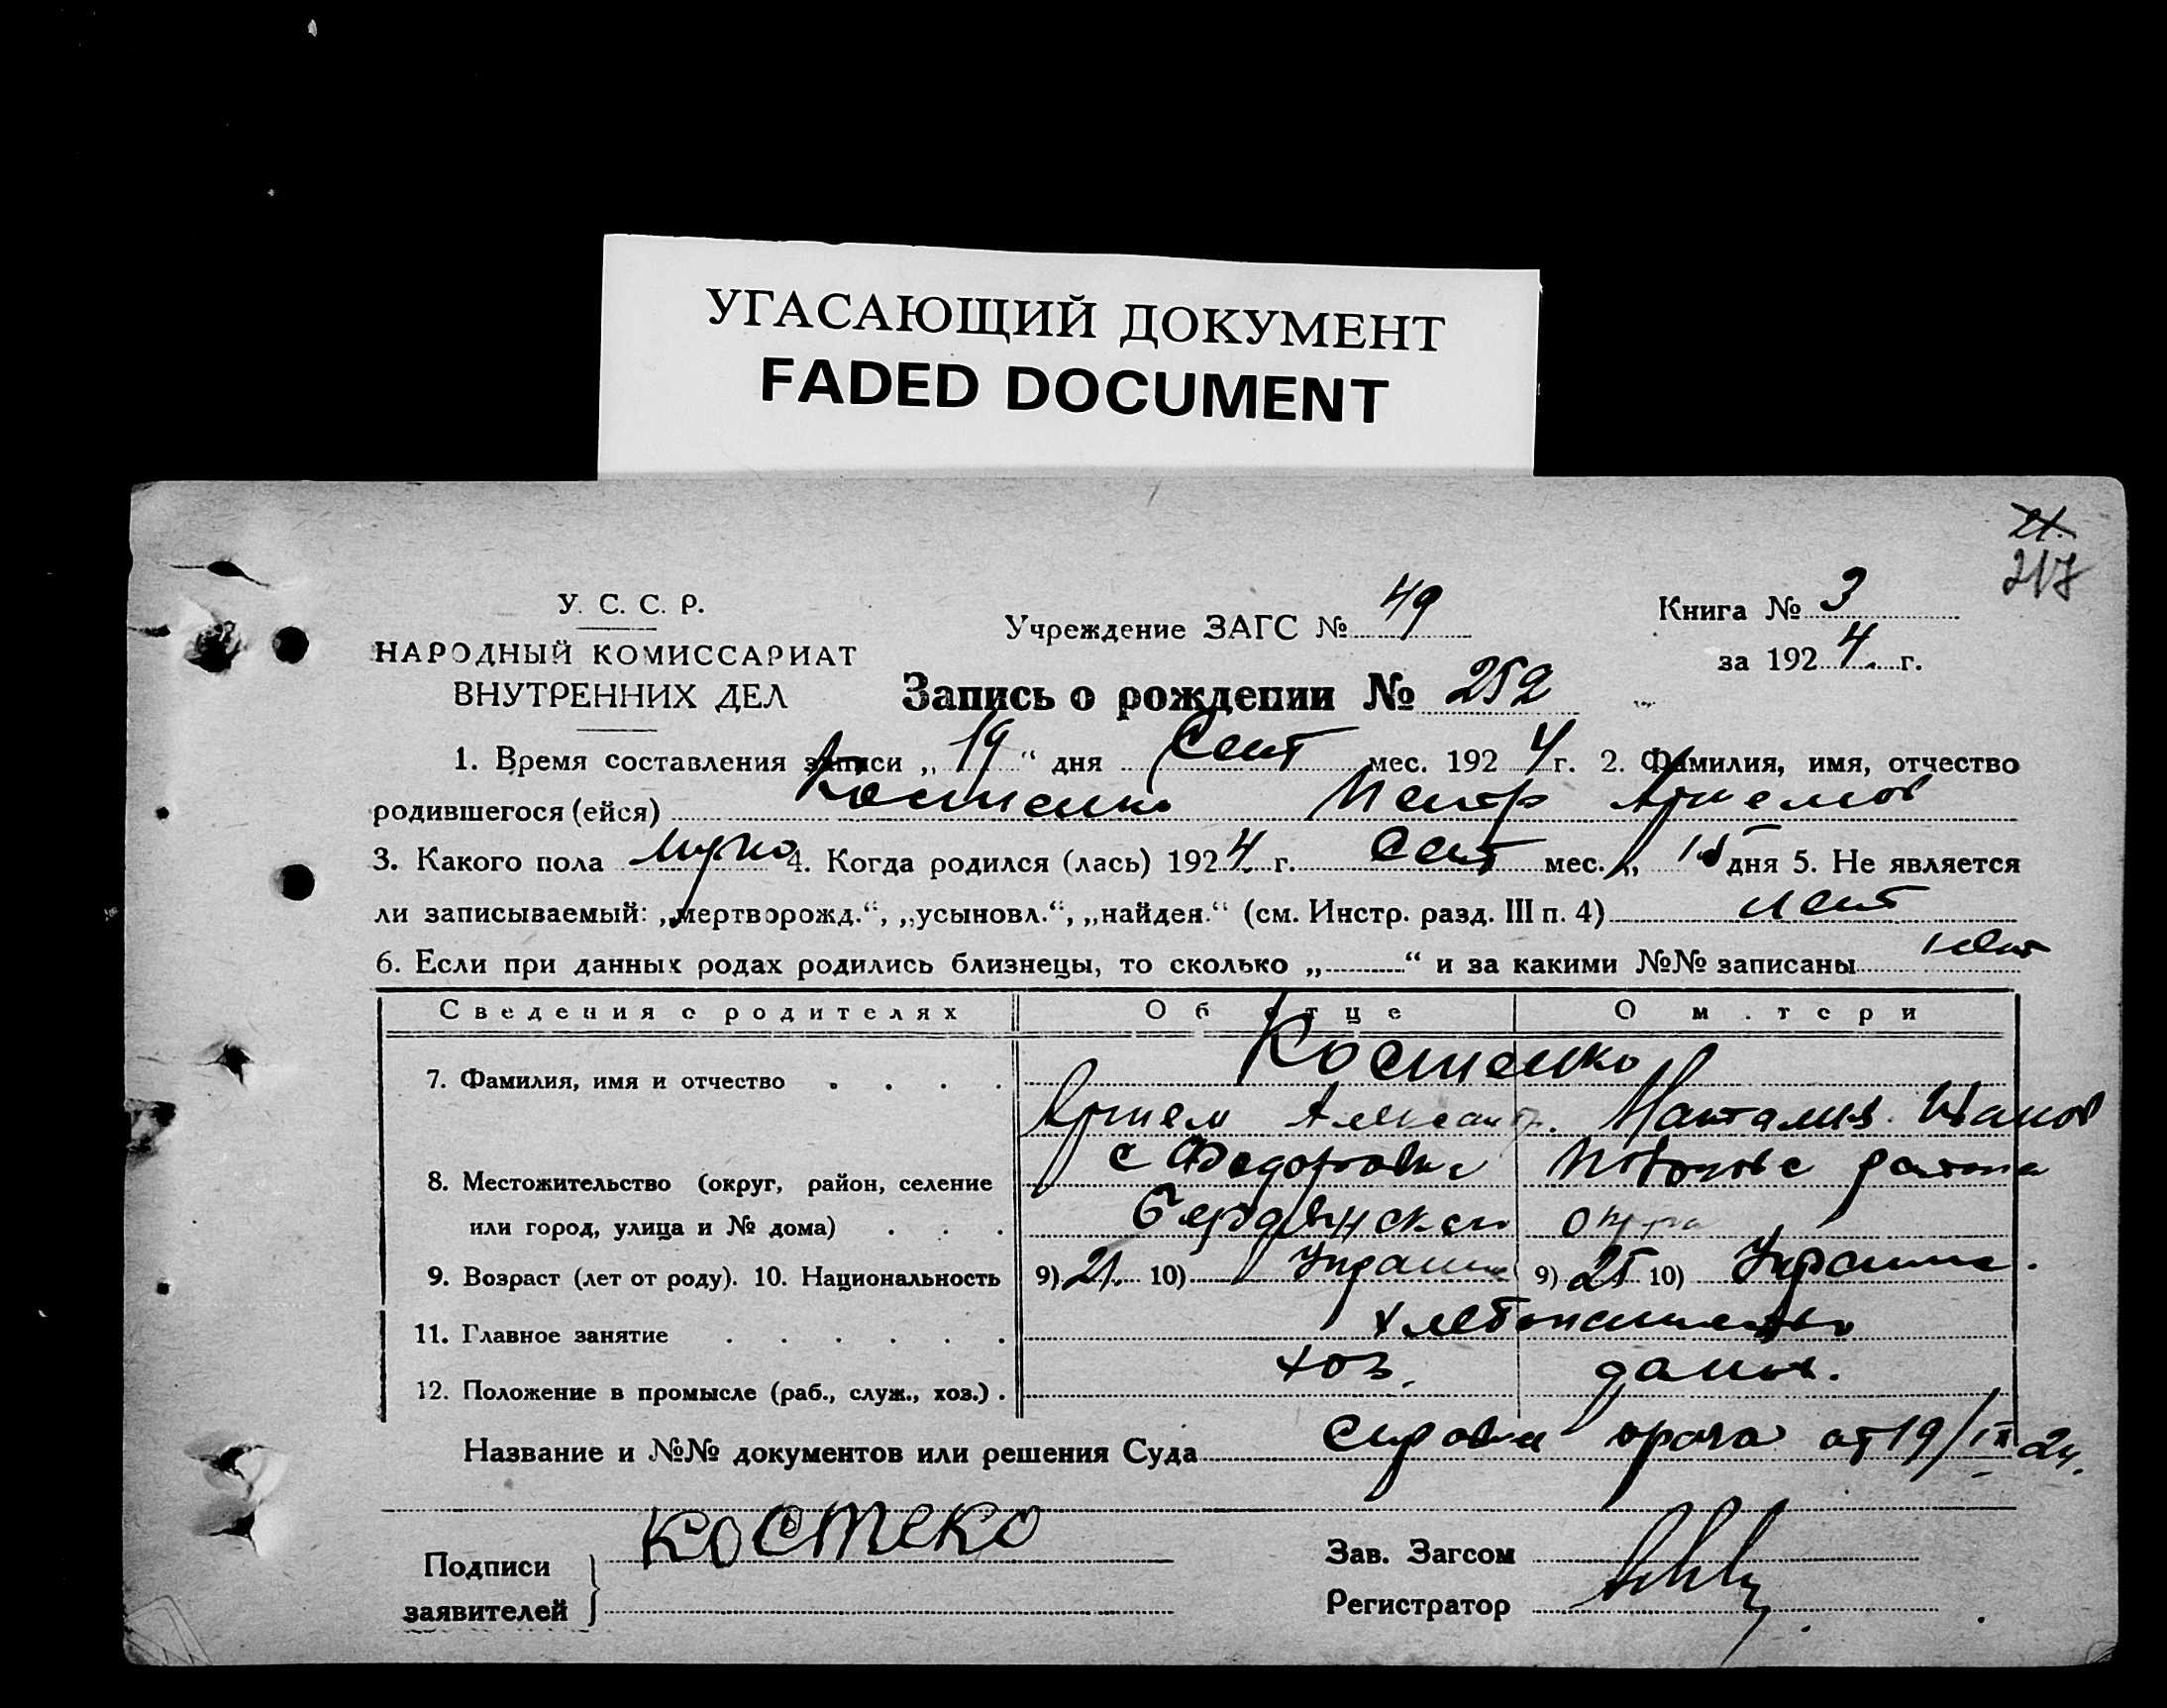 УГАСАЮЩИЙ ДОКУМЕНТ
FADED DOCUMENT
21.
217
У. С. С. Р.
НАРОДНЫЙ КОМИССАРИАТ
ВНУТРЕННИХ ДЕЛ
Учреждение ЗАГС № 49
Книга № 3
за 1924 г.
Запись о рождении № 252
1. Время составления записи „19“ дня Сент мес. 1924 г. 2. Фамилия, имя, отчество
родившегося (ейся) Костенко Петр Артемов
3. Какого пола мужс 4. Когда родился (лась) 1924 г. Сент мес. „15 дня 5. Не является
ли записываемый: „мертворожд.“, „усыновл.“, „найден.“ (см. Инстр. разд. III п. 4) нет
6. Если при данных родах родились близнецы, то сколько „ “ и за какими №№ записаны нет
Сведения о родителях Об отце О м.тери
7. Фамилия, имя и отчество . . . . Костенко
Артем Александр. Наталия Иванов
8. Местожительство (округ, район, селение с Федоровка района
или город, улица и № дома) . . . Бердянской округа
9. Возраст (лет от роду). 10. Национальность 9) 21. 10) Украинц 9) 25 10) Украинк.
11. Главное занятие . . . . . . хлебопашество
12. Положение в промысле (раб., служ., хоз.) . хоз. домох.
Название и №№ документов или решения Суда справка врача от 19/IX 24.
Подписи
заявителей } Костеко
Зав. Загсом
Регистратор